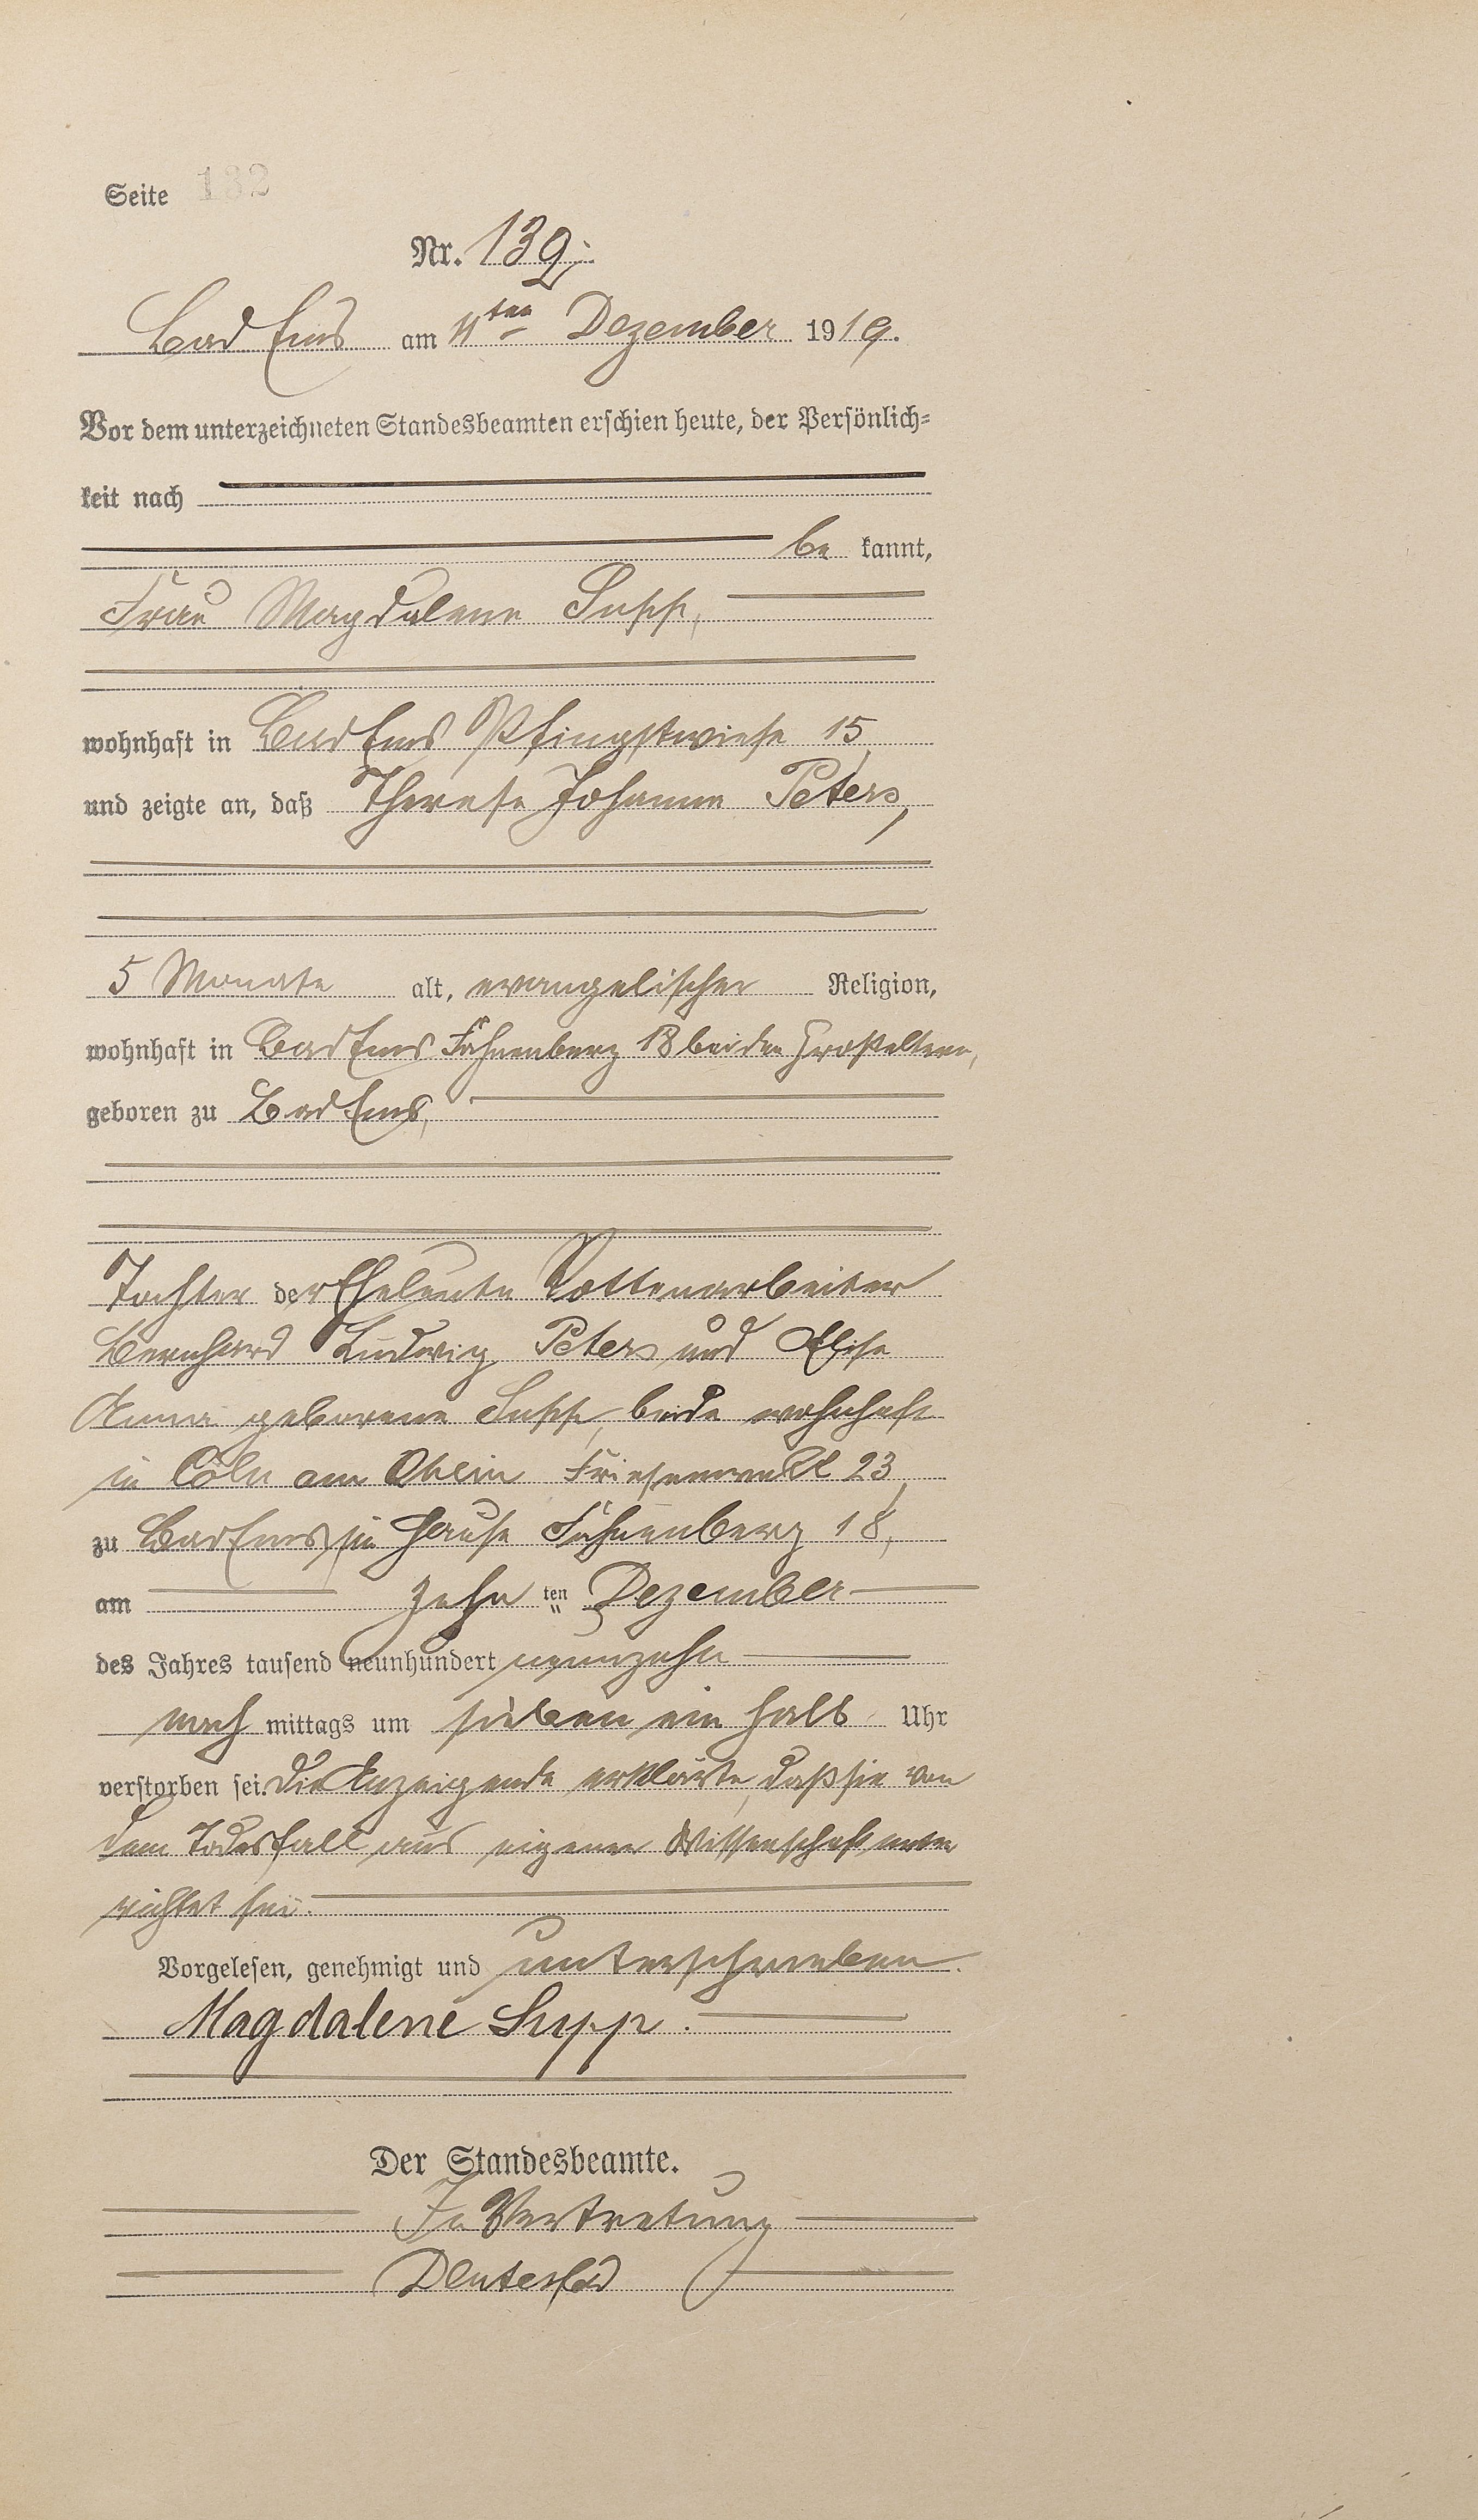 Seite 132
Nr. 139.
Bad Ems am 11ten Dezember 1919.
Vor dem unterzeichneten Standesbeamten erschien heute, der Persönlich=
keit nach
be kannt,
Frau Magdalene Supp,
wohnhaft in Bad Ems Pfingstwiese 15
und zeigte an, daß Therese Johanna Peters,
5 Monate alt, evangelischer Religion,
wohnhaft in Bad Ems Fahnenberg 18 bei den Großeltern,
geboren zu Bad Ems,
Tochter der Eheleute Rottenarbeiter
Bernhard Ludwig Peters und Elise
Anna geborene Supp, beide wohnhaft
in Cöln am Rhein Friesenwall 23,
zu Bad Ems, im Hause Fahnenberg 18,
am zehn ten Dezember
des Jahres tausend neunhundert neunzehn
nach mittags um sieben ein halb Uhr
verstorben sei. Die Anzeigende erklärte, daß sie von
dem Todesfall aus eigener Wissenschaft unter
richtet sei.
Vorgelesen, genehmigt und unterschrieben.
Magdalene Supp.
Der Standesbeamte.
In Vertretung